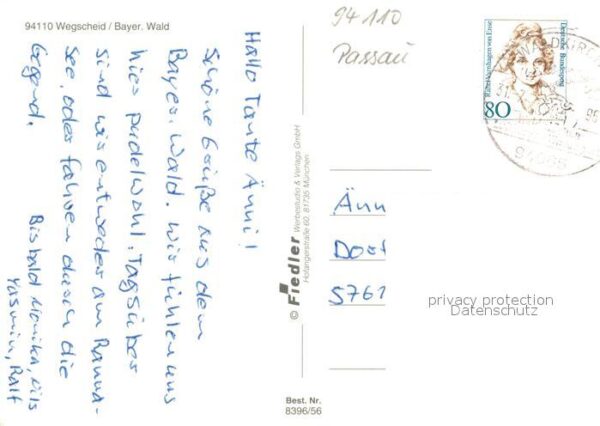 94110 Wegscheid / Bayer. Wald
Hallo Tante Änni!
Schöne Grüße aus dem
Bayer. Wald. Wir fühlen uns
hier pudelwohl. Tagsüber
sind wir entweder am Rannasee,
oder fahren durch die
Gegend.
Bis bald Monika, Nils
Yasmin, Ralf
© Fiedler
Werbestudio & Verlags GmbH
Hofangerstraße 60, 81735 München
Best. Nr.
8396/56
94 110
Passau
Rahel Varnhagen von Ense
Deutsche Bundespost
80
Änn
Dost
5761
privacy protection
Datenschutz